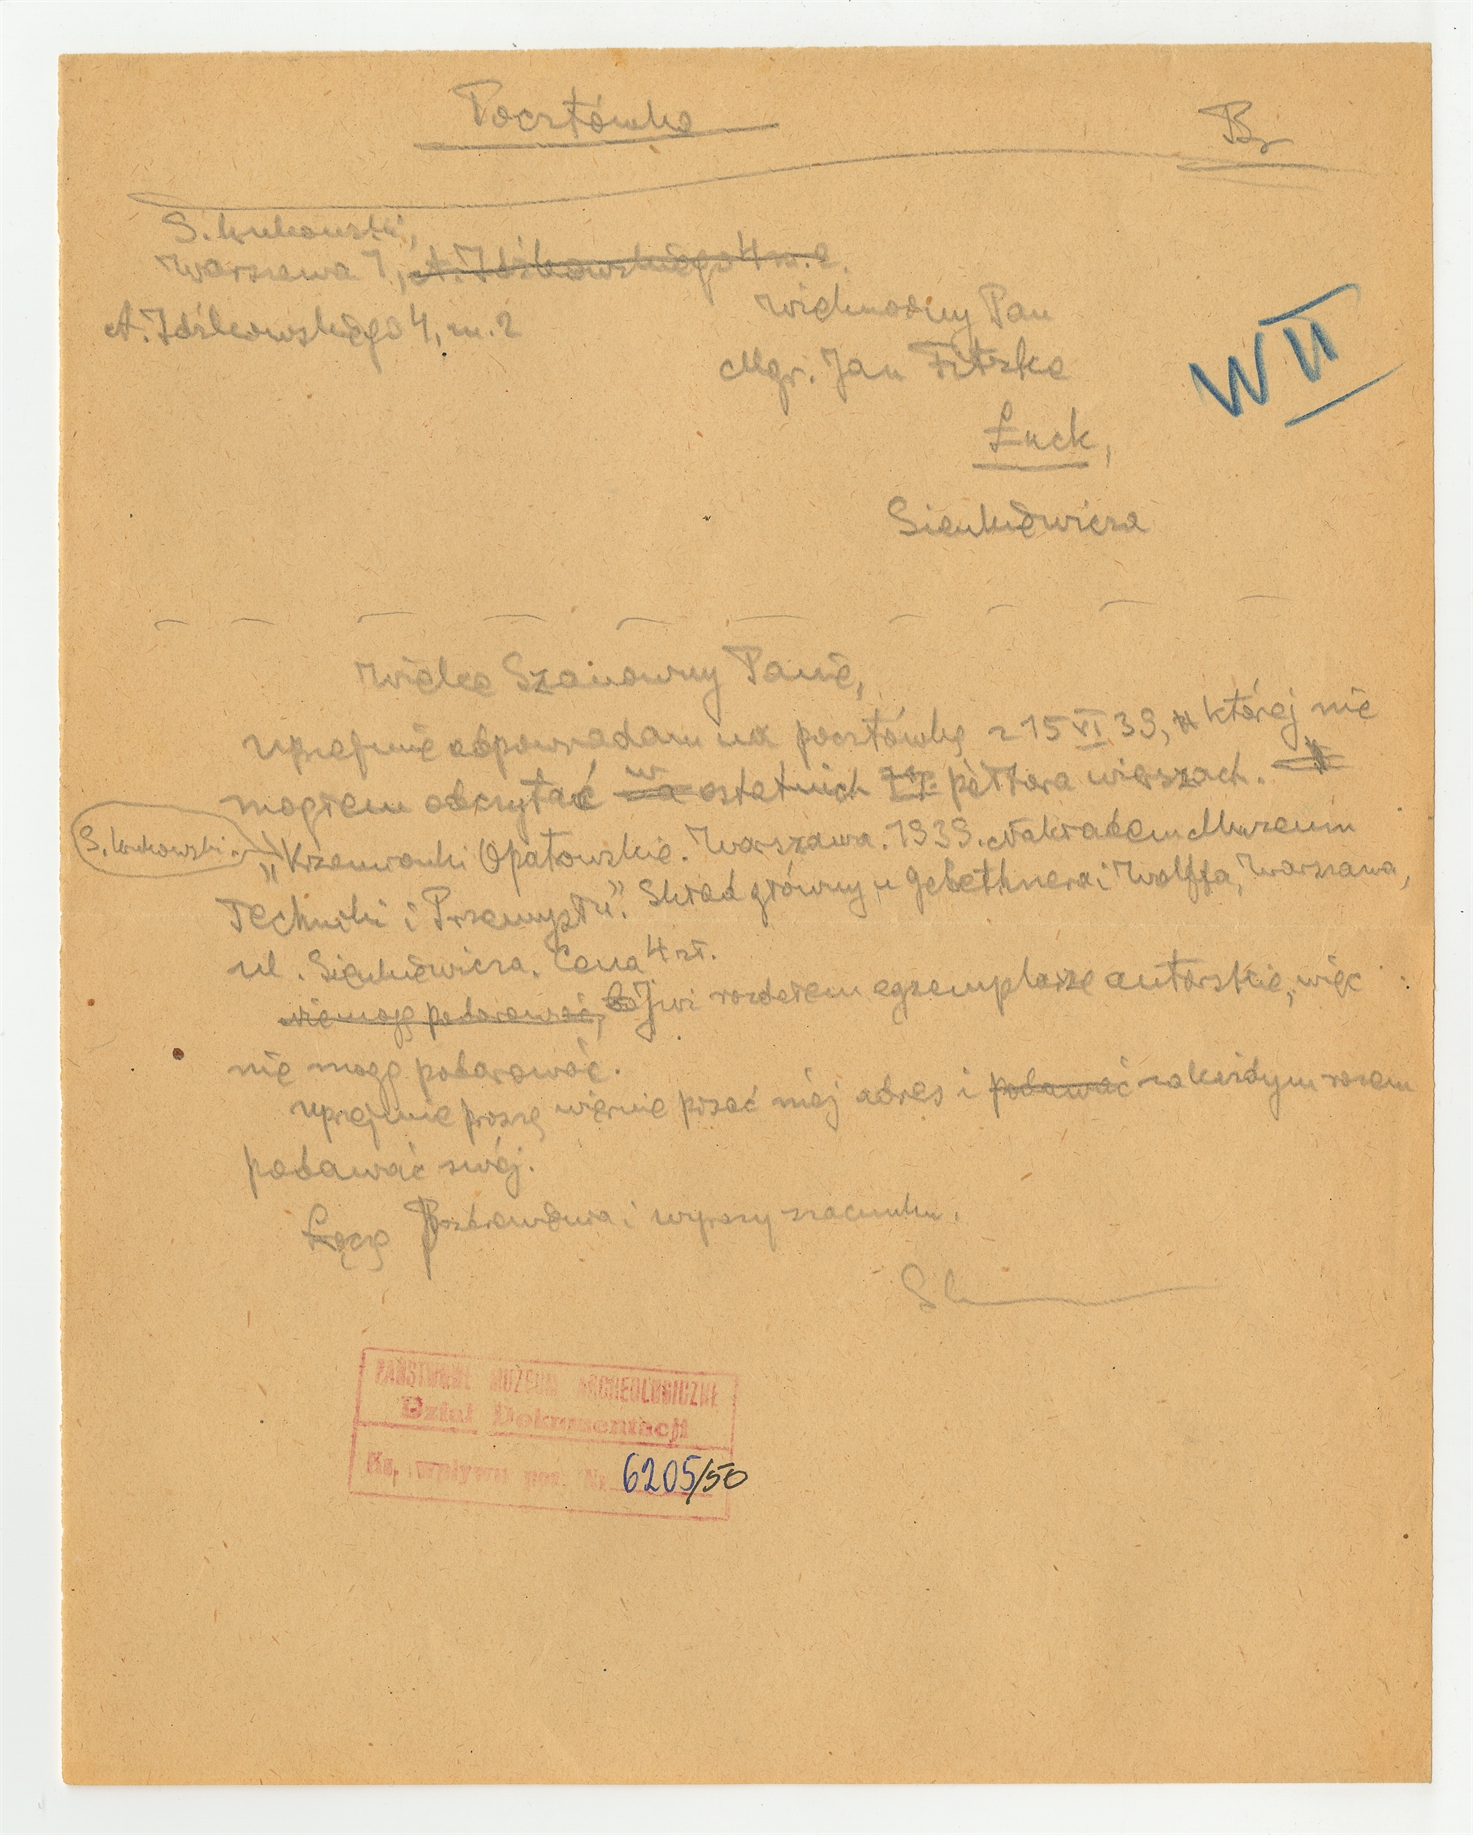 Pocztówka
S. Krukowski,
Warszawa 1, A. Idźkowskiego 4 m. 2.
A. Idźkowskiego 4, m. 2
Wielmożny Pan
Mgr. Jan Fitzke
Łuck,
Sienkiewicza
W II
Wielce Szanowny Panie,
Uprzejmie odpowiadam na pocztówkę z 15 VI 39, której nie
mogłem odczytać w ostatnich półtora wierszach.
S. Krukowski.
„Krzemionki Opatowskie. Warszawa. 1939. Nakładem Muzeum
Techniki i Przemysłu". Skład główny u Gebethnera i Wolffa, Warszawa,
ul. Sienkiewicza. Cena 4 zł.
nie mogę podarować, Już rozdałem egzemplarze autorskie, więc
nie mogę podarować.
Uprzejmie proszę wiernie pisać mój adres i podawać za każdym razem
podawać swój.
Łączę Pozdrowienia i wyrazy szacunku.
PAŃSTWOWE MUZEUM ARCHEOLOGICZNE
Dział Dokumentacji
Ks. wpływu poz. Nr. 6205/50